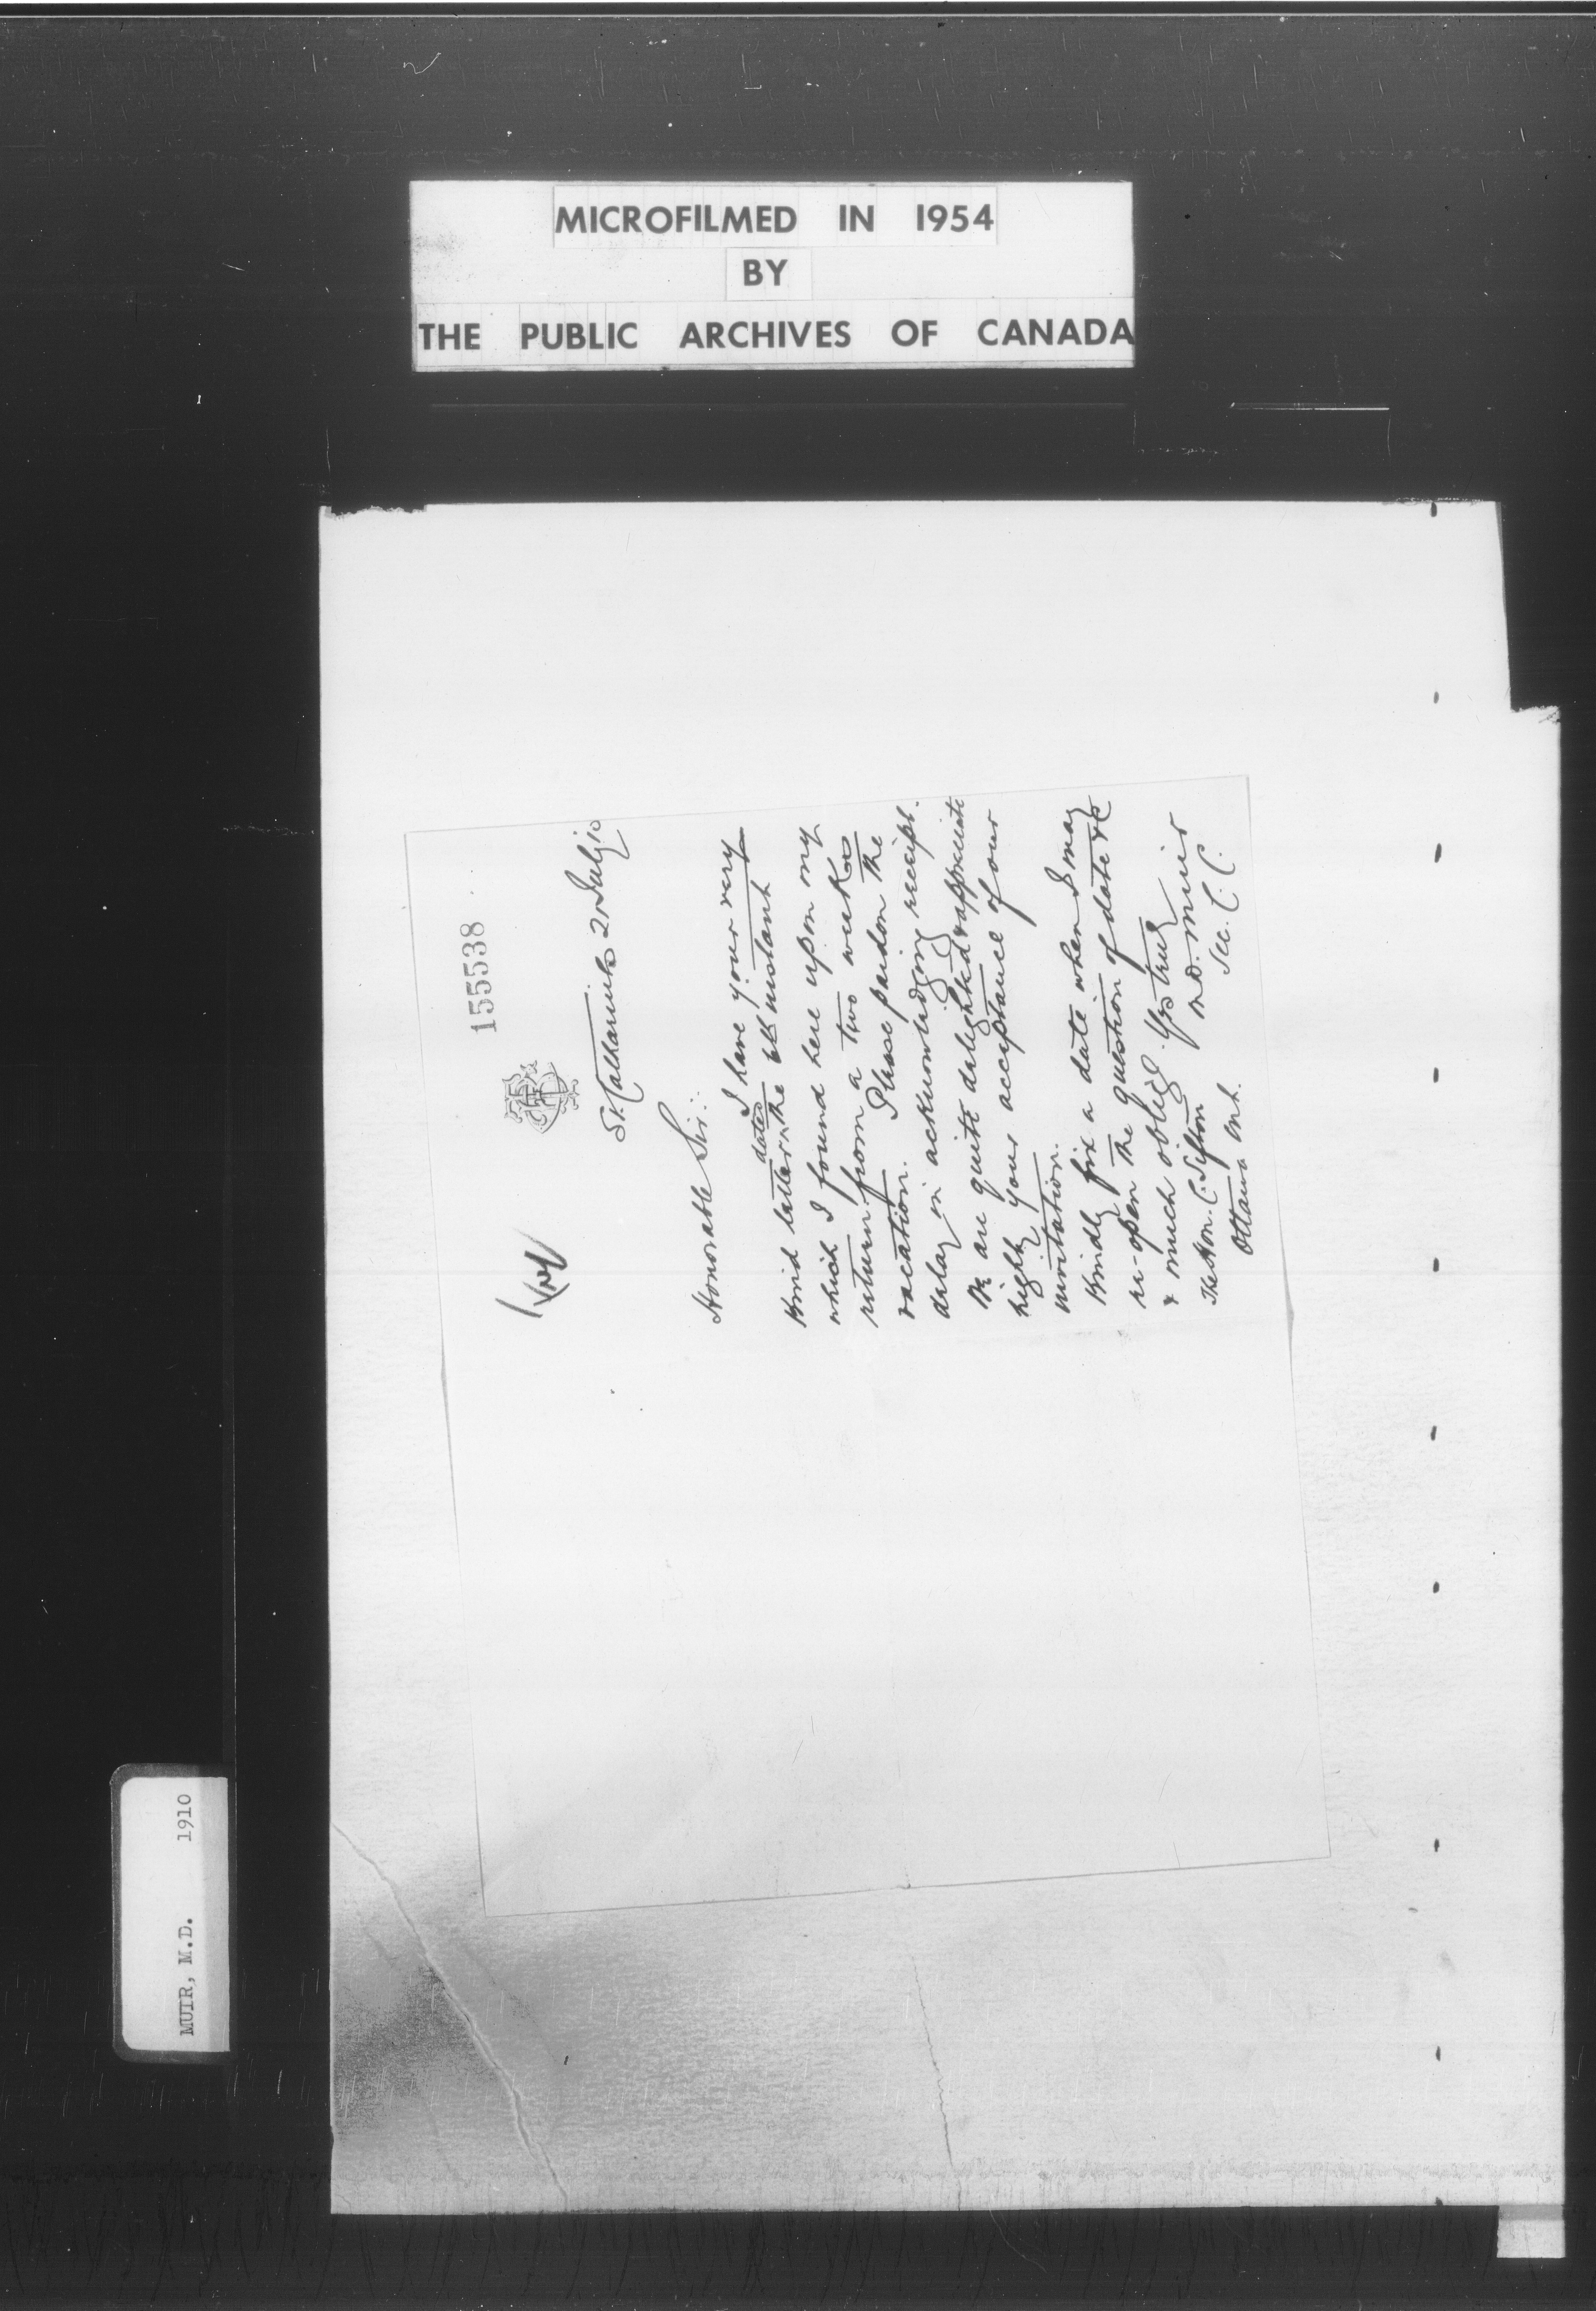 MICROFILMED IN 1954
BY
THE PUBLIC ARCHIVES OF CANADA
155538
St. Catharines 21 July 10
Honorable Sir:
I have your very
kind letter dated the 6th instant
which I found here upon my
return from a two weeks
vacation. Please pardon the
delay in acknowledging receipt.
We are quite delighted & appreciate
highly your acceptance of our
invitation.
Kindly fix a date when I may
re-open the question of date &c
& much oblige. Yrs truly
M.D. Muir
Sec. C.C.
The Hon. C. Sifton
Ottawa Ont.
MUIR, M.D. 1910